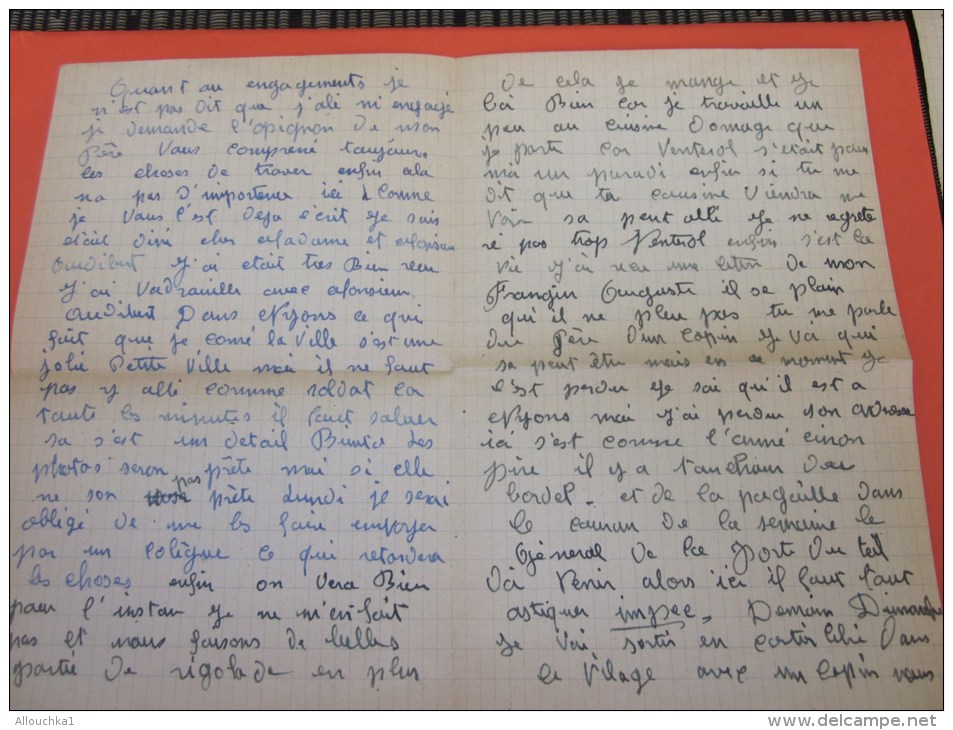 Quant au engagements je
n'est pas dit que j'alé m'engagé
je demande l'opignon de mon
Père Vous comprené toujour
les choses de traver enfin cela
na pas d'importence ici Comme
je vous l'est deja écrit je suis
était diné cher Madame et Monsieur
Audibert j'ai était très Bien recu
j'ai vadrouiller avec Monsieur
Audibert Dans Nyons ce qui
fait que je coné la ville s'est une
jolie Petite Ville mai il ne faut
pas y allé comme soldat car
toute les minutes il faut saluer
sa s'est un detail Bientot les
photos seron prète mai si elle
ne son pas prète Lundi je serai
obligé de me les faire envoyer
par un colègue ce qui retardera
les choses enfin on vera Bien
pour l'instan je ne m'en fait
pas et nous faisons de belles
partie de rigolade en plus
De cela je mange et je
Boi Bien car je travaille un
peu au cuisine Domage que
je parte car Venterol s'était pour
moi un paradi enfin si tu me
dit que ta cousine viendra me
voir sa peut allé je ne regrete
ré pas trop Venterol enfin s'est la
vie j'ai recu une lettre de mon
Frangin Auguste il se plain
qu'il ne pleu pas tu me parle
du Père d'un copin y va qui
sa peut être mais en ce moment je
l'est perdu je sai qu'il est a
Nyons mai j'ai perdu son adresse
ici s'est comme l'armé sinon
pire il y a toujour du
bordel - et de la pagaille dans
le couran de la semaine le
Géneral de la Porte du teil
doi venir alors ici il faut tout
astiquer impec. Demain Dimanche
je vai sortir en sortie libre Dans
le Village avec un copin nous
Allouchka1
www.delcampe.net